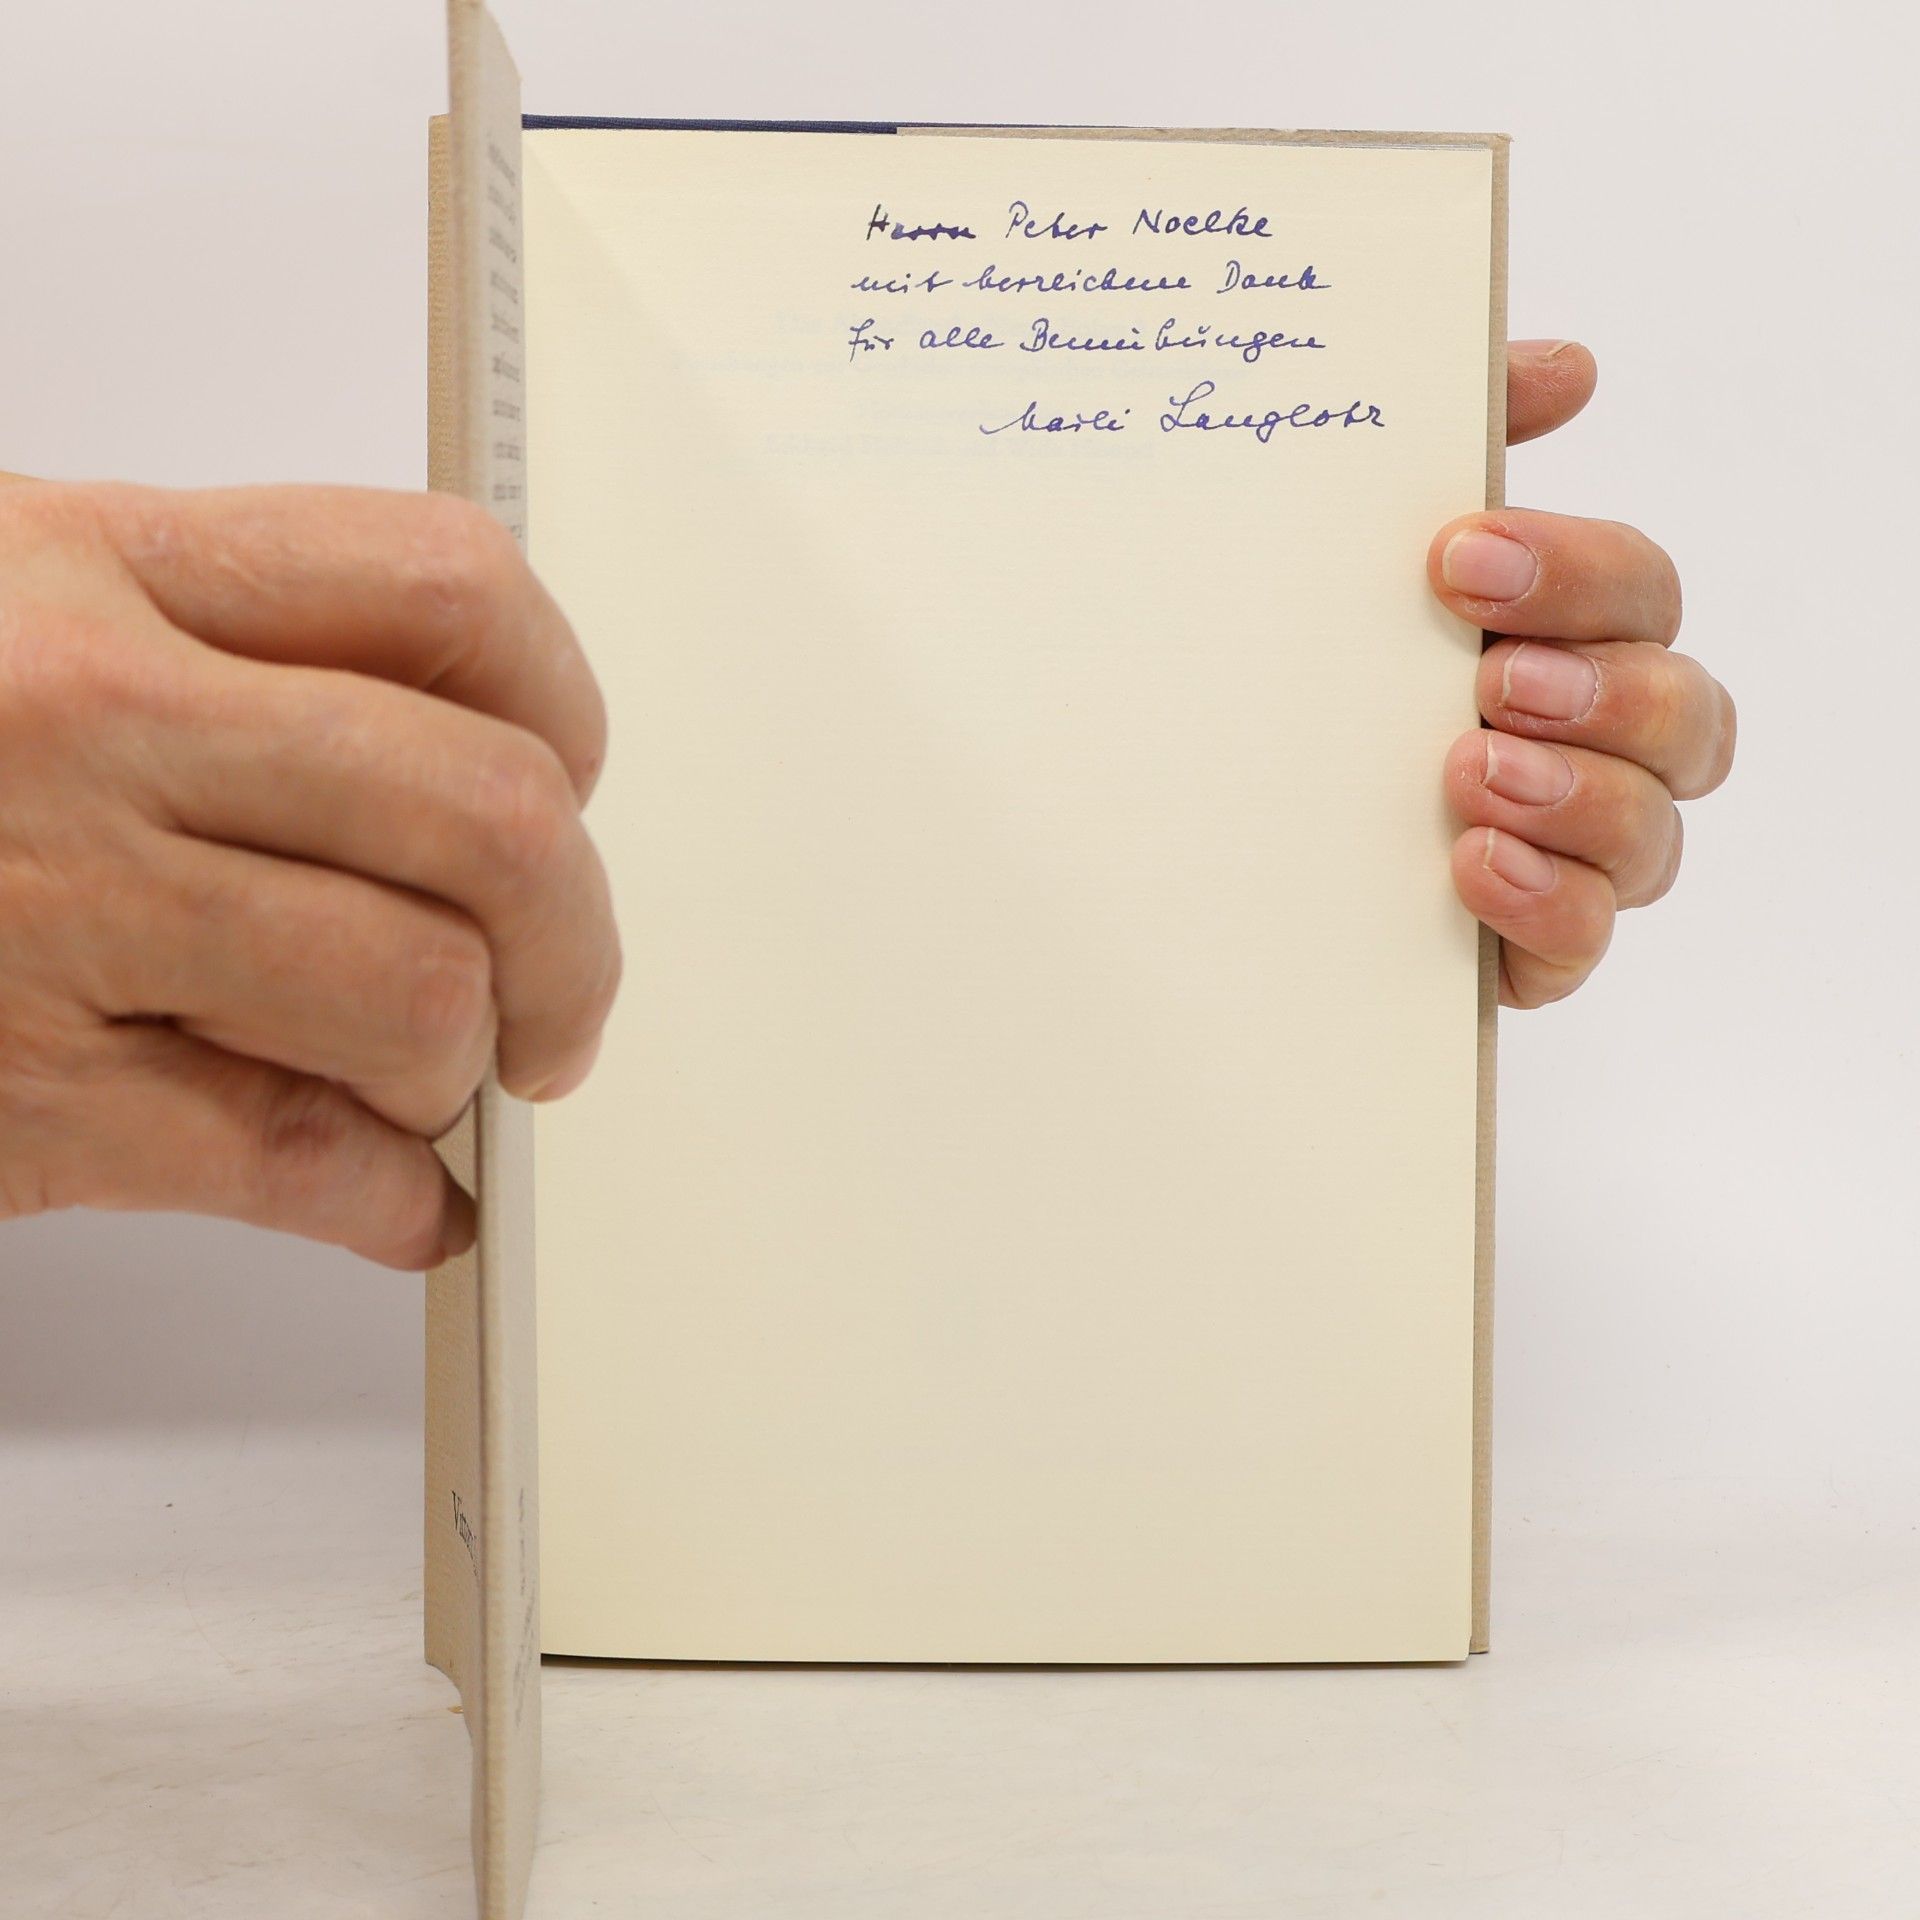 Herrn Peter Noelke
mit herzlichem Dank
für alle Bemühungen
Marli Langlotz